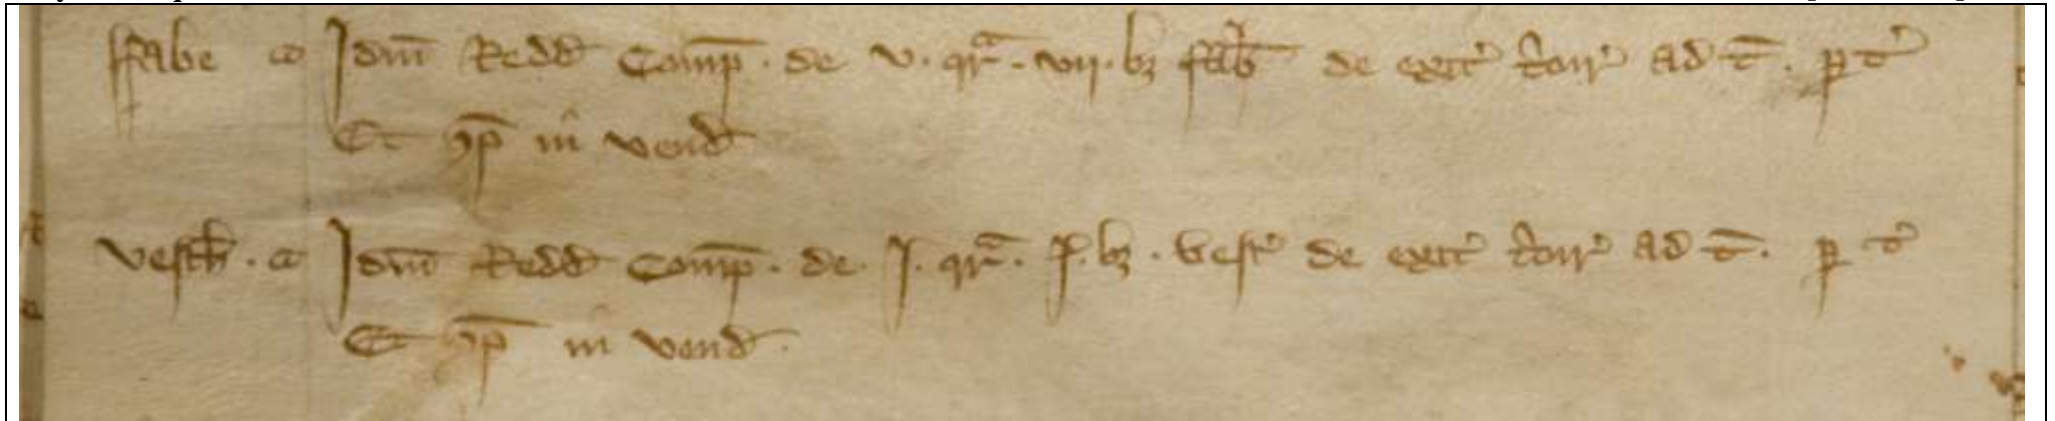 ffabe Idm̄ Redd Comp̄ . de v . qrᵃ . vii . bȝ fab̄ de exit' ad t̄ . p̱ t'
Et ꝯp̄ in vend
Vesch̄ . Idm̄ Redd Comp̄ . de . j . qrᵃ . j . bȝ . vesc' de exit' ad t̄ . p̱ t'
Et ꝯp̄ in vend .